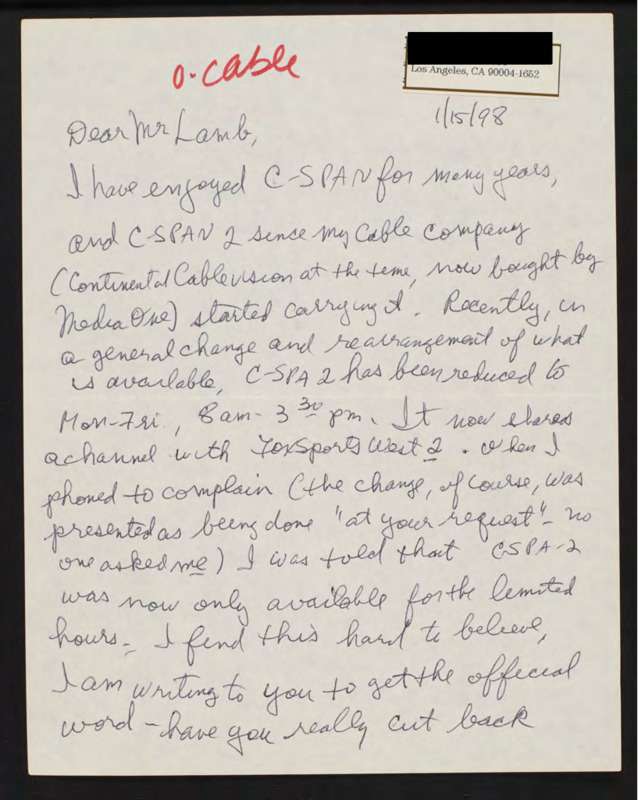 o. cable
Los Angeles, CA 90004-1652
1/15/98
Dear Mr Lamb,
I have enjoyed C-SPAN for many years,
and C-SPAN 2 since my Cable company
(Continental Cablevision at the teme, now bought by
Media One) started carrying it. Recently, in
a general change and rearrangement of what
is available, C-SPA 2 has been reduced to
Mon-Fri., 8 am - 3 30 pm. It now shares
a channel with FoxSports West 2. When I
phoned to complain (the change, of course, was
presented as being done "at your request" - no
one asked me) I was told that CSPA-2
was now only available for the limited
hours - I find this hard to believe,
I am writing to you to get the official
word - have you really cut back